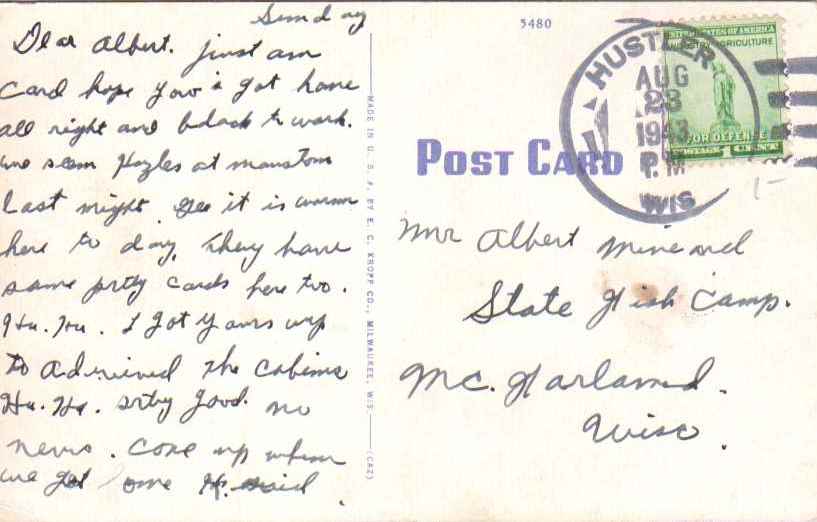 Sunday
Dear Albert. just am
Card hope you's got home
all right and back to work.
we seen at
Last night. gee it is warm
here to day. They have
some prtty Cards here two.
I got yours up
to the cabins
good. no
news. Come up when
we get
MADE IN U. S. A. BY E. C. KROPP CO., MILWAUKEE, WIS.
5480
POST CARD
HUSTLER
AUG
23
1943
P.M
WIS
UNITED STATES OF AMERICA
INDUSTRY AGRICULTURE
FOR DEFENSE
POSTAGE 1 CENT
Mr Albert
State Fish Camp.
Mc. Farland.
Wisc.